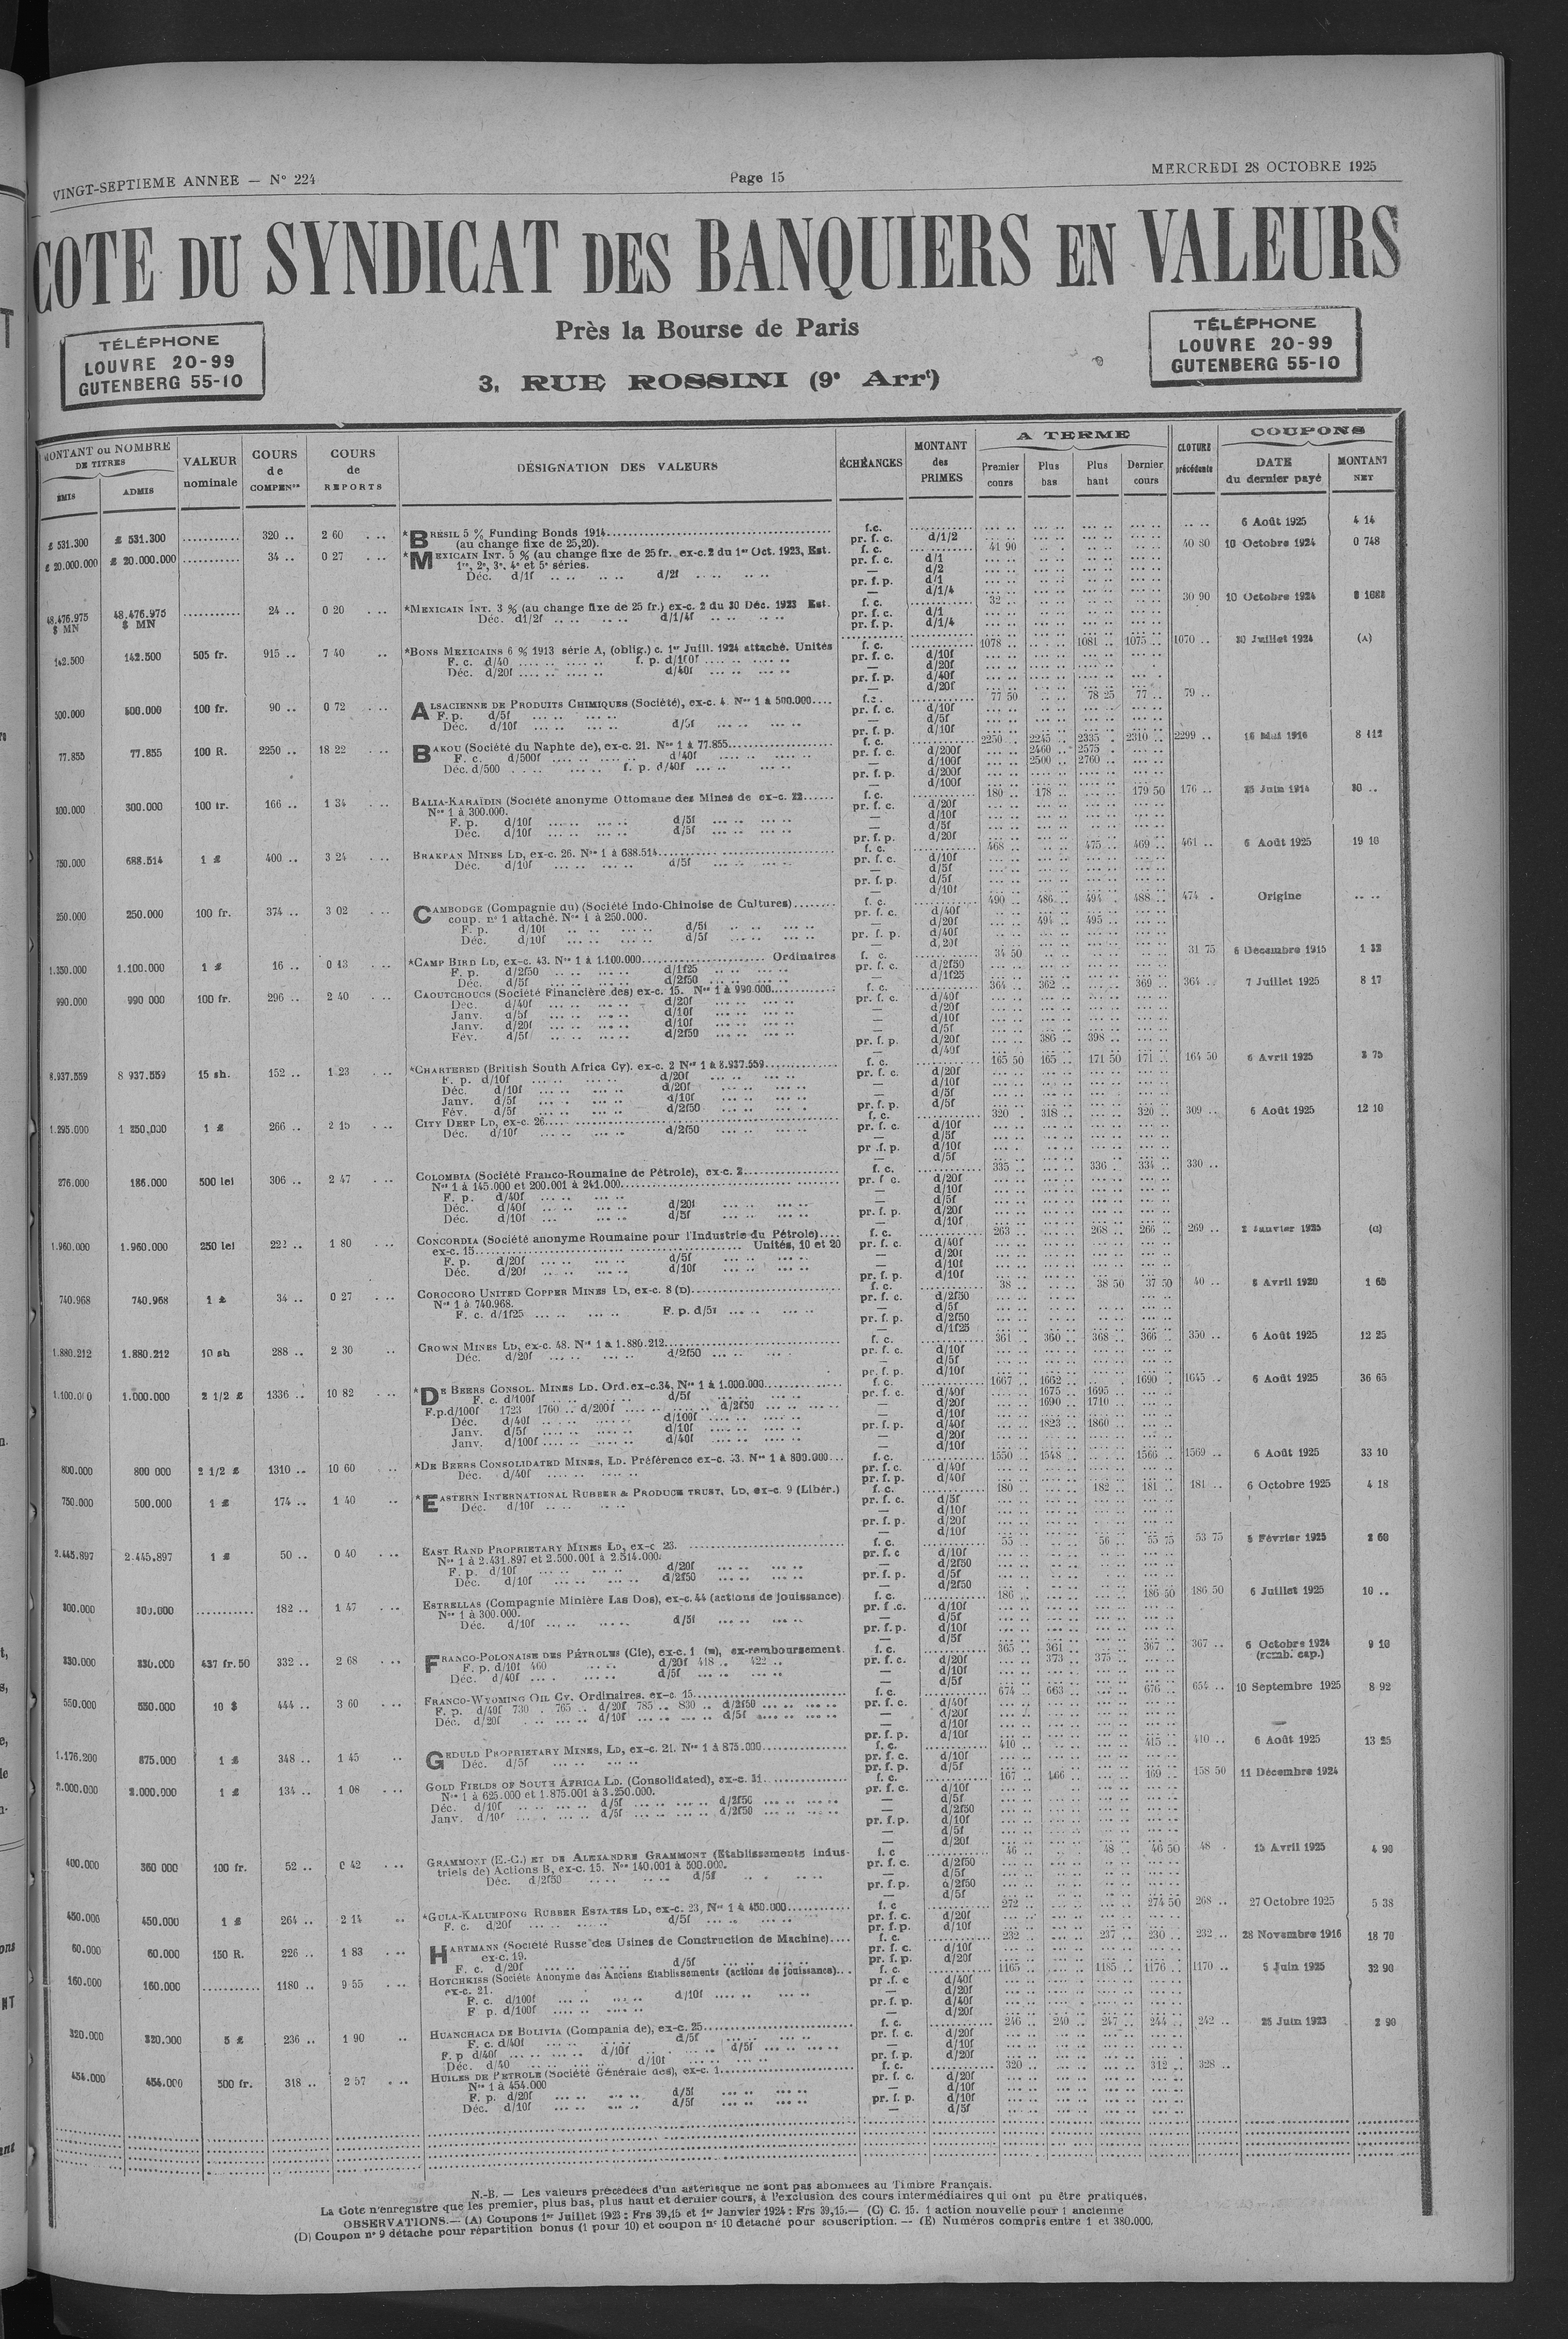 VINGT-SEPTIEME ANNEE — N° 224
Page 15
MERCREDI 28 OCTOBRE 1925
COTE DU SYNDICAT DES BANQUIERS EN VALEURS
TÉLÉPHONE
LOUVRE 20-99
GUTENBERG 55-10
Près la Bourse de Paris
3, RUE ROSSINI (9e Arrt)
TÉLÉPHONE
LOUVRE 20-99
GUTENBERG 55-10
MONTANT ou NOMBRE DE TITRES
EMIS
ADMIS
VALEUR nominale
COURS de COMPENon
COURS de REPORTS
DÉSIGNATION DES VALEURS
ÉCHÉANCES
MONTANT des PRIMES
A TERME
Premier cours
Plus bas
Plus haut
Dernier cours
CLOTURE précédente
COUPONS
DATE du dernier payé
MONTANT NET
£ 531.300 £ 531.300 320 .. 2 60 *BRESIL 5 % Funding Bonds 1914 f.c. 6 Août 1925 4 14
(au change fixe de 25,20). pr. f. c. d/1/2
£ 20.000.000 £ 20.000.000 34 .. 0 27 *MEXICAIN INT. 5 % (au change fixe de 25 fr. ex-c. 2 du 1er Oct. 1923, Est. f. c. 41 90 40 80 10 Octobre 1924 0 748
1re, 2e, 3e, 4e et 5e séries. pr. f. c. d/1
Déc. d/1f d/2f — d/2
pr. f. p. d/1
— d/1/4
48.476.975 $ MN 48.476.975 $ MN 24 .. 0 20 *MEXICAIN INT. 3 % (au change fixe de 25 fr.) ex-c. 2 du 30 Déc. 1923 Est. f. c. 32 .. 30 90 10 Octobre 1924
Déc. d1/2f d/1/4f pr. f. c. d/1
pr. f. p. d/1/4
142.500 142.500 505 fr. 915 .. 7 40 *BONS MEXICAINS 6 % 1913 série A, (oblig.) c. 1er Juill. 1924 attaché. Unités f. c. 1078 .. 1081 .. 1075 .. 1070 .. 30 Juillet 1924 (A)
F. c. d/40 f. p. d/100f pr. f. c. d/10f
Déc. d/20f d/40f — d/20f
pr. f. p. d/40f
— d/20f
500.000 500.000 100 fr. 90 .. 0 72 ALSACIENNE DE PRODUITS CHIMIQUES (Société), ex-c. 4. Nos 1 à 500.000 f.c. 77 50 78 25 77 .. 79 ..
F. p. d/5f pr. f. c. d/10f
Déc. d/10f d/5f — d/5f
pr. f. p. d/10f
77.855 77.855 100 R. 2250 .. 18 22 BAKOU (Société du Naphte de), ex-c. 21. Nos 1 à 77.855 f. c. 2250 .. 2245 .. 2335 .. 2310 .. 2299 .. 16 Mai 1916 8 112
F. c. d/500f d/40f pr. f. c. d/200f 2460 .. 2575 ..
Déc. d/500 f. p. d/40f — d/100f 2500 .. 2760 ..
pr. f. p. d/200f
— d/100f
300.000 300.000 100 fr. 166 .. 1 34 BALIA-KARAÏDIN (Société anonyme Ottomane des Mines de ex-c. 22 f. c. 180 .. 178 .. 179 50 176 .. 25 Juin 1914
Nos 1 à 300.000. pr. f. c. d/20f
F. p. d/10f d/5f — d/10f
Déc. d/10f d/5f — d/5f
pr. f. p. d/20f
750.000 688.514 1 £ 400 .. 3 24 BRAKPAN MINES LD, ex-c. 26. Nos 1 à 688.514 f. c. 468 .. 475 .. 469 .. 461 .. 6 Août 1925 19 10
Déc. d/10f d/5f pr. f. c. d/10f
— d/5f
pr. f. p. d/5f
— d/10f
250.000 250.000 100 fr. 374 .. 3 02 CAMBODGE (Compagnie du) (Société Indo-Chinoise de Cultures) f. c. 490 .. 486 .. 494 . 488 .. 474 . Origine
coup. n° 1 attaché. Nos 1 à 250.000. pr. f. c. d/40f
F. p. d/10f d/5f — d/20f 494 .. 495 ..
Déc. d/10f d/5f pr. f. p. d/40f
— d/20f
1.350.000 1.100.000 1 £ 16 .. 0 13 *CAMP BIRD LD, ex-c. 43. Nos 1 à 1.100.000 Ordinaires f. c. 34 50 31 75 6 Decembre 1915
F. p. d/2f50 d/1f25 pr. f. c. d/2f50
Déc. d/5f d/2f50 — d/1f25
990.000 990 000 100 fr. 296 .. 2 40 CAOUTCHOUCS (Société Financière des) ex-c. 15. Nos 1 à 990.000 f. c. 364 .. 362 .. 369 .. 364 .. 7 Juillet 1925 8 17
Déc. d/40f d/20f pr. f. c. d/40f
Janv. d/5f d/10f — d/20f
Janv. d/20f d/10f — d/10f
Fév. d/5f d/2f50 — d/5f
pr. f. p. d/20f 386 .. 398 ..
— d/40f
8.937.559 8 937.559 15 sh. 152 .. 1 23 *CHARTERED (British South Africa Cy). ex-c. 2 Nos 1 à 8.937.559 f. c. 165 50 165 .. 171 50 171 .. 164 50 6 Avril 1925 2 75
F. p. d/10f d/20f pr. f. c. d/20f
Déc. d/10f d/20f — d/10f
Janv. d/5f d/10f — d/5f
Fév. d/5f d/2f50 pr. f. p. d/5f
1.295.000 1 250.000 1 £ 266 .. 2 15 CITY DEEP LD, ex-c. 26 f. c. 320 . 318 .. 320 .. 309 .. 6 Août 1925 12 10
Déc. d/10f d/2f50 pr. f. c. d/10f
— d/5f
pr .f. p. d/10f
— d/5f
276.000 186.000 500 lei 306 .. 2 47 COLOMBIA (Société Franco-Roumaine de Pétrole), ex-c. 2 f. c. 335 .. 336 .. 334 .. 330 ..
Nos 1 à 145.000 et 200.001 à 241.000 pr. f c. d/20f
F. p. d/40f — d/10f
Déc. d/40f d/20f — d/5f
Déc. d/10f d/5f pr. f. p. d/20f
— d/10f
1.960.000 1.960.000 250 lei 222 .. 1 80 CONCORDIA (Société anonyme Roumaine pour l'Industrie du Pétrole) f. c. 263 .. 268 .. 266 .. 269 .. 2 Janvier 1925
ex-c. 15 Unités, 10 et 20 pr. f. c. d/40f
F. p. d/20f d/5f — d/20f
Déc. d/20f d/10f — d/10f
pr. f. p. d/10f
740.968 740.968 1 £ 34 .. 0 27 COROCORO UNITED COPPER MINES LD, ex-c. 8 (D) f. c. 38 .. 38 50 37 50 40 .. 8 Avril 1920 1 65
Nos 1 à 740.968. pr. f. c. d/2f50
F. c. d/1f25 F. p. d/5f — d/5f
pr. f. p. d/2f50
— d/1f25
1.880.212 1.880.212 10 sh 288 .. 2 30 CROWN MINES LD, ex-c. 48. Nos 1 à 1.880.212 f. c. 361 .. 360 .. 368 .. 366 .. 350 .. 6 Août 1925 12 25
Déc. d/20f d/2f50 pr. f. c. d/10f
— d/5f
pr. f. p. d/10f
1.100.000 1.000.000 2 1/2 £ 1336 .. 10 82 *DE BEERS CONSOL. MINES LD. Ord. ex-c.34, Nos 1 à 1.000.000 f. c. 1667 .. 1662 .. 1690 .. 1645 .. 6 Août 1925 36 65
F. c. d/100f d/5f pr. f. c. d/40f 1675 .. 1695 ..
F.p.d/100f 1723 1760 .. d/200f d/2f50 — d/20f 1690 .. 1710 ..
Déc. d/40f d/100f — d/10f
Janv. d/5f d/10f pr. f. p. d/40f 1823 .. 1860 ..
Janv. d/100f d/40f — d/20f
— d/10f
800.000 800 000 2 1/2 £ 1310 .. 10 60 *DE BEERS CONSOLIDATED MINES, LD. Préférence ex-c. 33. Nos 1 à 800.000 f. c. 1550 .. 1548 .. 1566 .. 1569 .. 6 Août 1925 33 10
Déc. d/40f pr. f. c. d/40f
pr. f. p. d/40f
750.000 500.000 1 £ 174 .. 1 40 *EASTERN INTERNATIONAL RUBBER & PRODUCE TRUST, LD, ex-c. 9 (Libér.) f. c. 180 .. 182 .. 181 .. 181 .. 6 Octobre 1925 4 18
Déc. d/10f pr. f. c. d/5f
— d/10f
pr. f. p. d/20f
— d/10f
2.445.897 2.445.897 1 £ 50 .. 0 40 EAST RAND PROPRIETARY MINES LD, ex-c 23. f. c. 55 .. 56 .. 55 75 53 75 5 Février 1925 2 60
Nos 1 à 2.431.897 et 2.500.001 à 2.514.000. pr. f. c d/10f
F. p. d/10f d/20f — d/2f50
Déc. d/10f d/2f50 pr. f. p. d/5f
— d/2f50
300.000 300.000 182 .. 1 47 ESTRELLAS (Compagnie Minière Las Dos), ex-c. 44 (actions de jouissance) f. c. 186 .. 186 50 186 50 6 Juillet 1925 10 ..
Nos 1 à 300.000. pr. f .c. d/10f
Déc. d/10f d/5f — d/5f
pr. f. p. d/10f
— d/5f
330.000 330.000 437 fr. 50 332 .. 2 68 FRANCO-POLONAISE DES PÉTROLES (Cie), ex-c. 1 (E), ex-remboursement. f. c. 365 .. 361 .. 367 .. 367 .. 6 Octobre 1924 9 10
F. p. d/10f 460 d/20f 418 .. 422 .. pr. f. c. d/20f 373 .. 375 .. (remb. cap.)
Déc. d/40f d/5f — d/10f
— d/5f
550.000 550.000 10 $ 444 .. 3 60 FRANCO-WYOMING OIL Cy. Ordinaires. ex-c. 15 f. c. 674 .. 663 .. 676 .. 654 .. 10 Septembre 1925 8 92
F. p. d/40f 730 . 765 .. d/20f 785 .. 830 .. d/2f50 pr. f. c. d/40f
Déc. d/20f d/10f d/5f — d/20f
— d/10f
pr. f. p. d/10f
1.176.200 875.000 1 £ 348 .. 1 45 GEDULD PROPRIETARY MINES, LD, ex-c. 21. Nos 1 à 875.000 f. c. 410 .. 415 .. 410 .. 6 Août 1925 13 25
Déc. d/5f pr. f. c. d/10f
pr. f. p. d/5f
2.000.000 2.000.000 1 £ 134 .. 1 08 GOLD FIELDS OF SOUTH AFRICA LD. (Consolidated), ex-c. 31 f. c. 167 .. 166 .. 169 .. 158 50 11 Décembre 1924
Nos 1 à 625.000 et 1.875.001 à 3.250.000. pr. f. c. d/10f
Déc. d/10f d/5f d/2f50 — d/5f
Janv. d/10f d/5f d/2f50 — d/2f50
pr. f.p. d/10f
— d/5f
— d/20f
400.000 360 000 100 fr. 52 .. 0 42 GRAMMONT (E.-C.) ET DE ALEXANDRE GRAMMONT (Etablissements indus- f. c 46 .. 48 .. 46 50 48 . 15 Avril 1925 4 90
triels de) Actions B, ex-c. 15. Nos 140.001 à 500.000. pr. f. c. d/2f50
Déc. d/2f50 d/5f — d/5f
pr. f.p. d/2f50
— d/5f
450.000 450.000 1 £ 264 .. 2 14 *GULA-KALUMPONG RUBBER ESTATES LD, ex-c. 23, Nos 1 à 450.000 f. c 272 .. 274 50 268 .. 27 Octobre 1925 5 38
F. c. d/20f d/5f pr. f. c. d/20f
pr. f.p. d/10f
60.000 60.000 150 R. 226 .. 1 83 HARTMANN (Société Russe des Usines de Construction de Machine) f. c. 232 .. 237 .. 230 .. 232 .. 28 Novembre 1916 18 70
ex-c. 19. pr. f. c. d/10f
F. c. d/20f d/5f pr. f. p. d/20f
160.000 160.000 1180 .. 9 55 HOTCHKISS (Société Anonyme des Anciens Etablissements (actions de jouissance) f. c. 1165 .. 1185 .. 1176 .. 1170 .. 5 Juin 1925 32 90
ex-c. 21. pr .f. c d/40f
F. c. d/100f d/10f — d/20f
F p. d/100f pr. f. p. d/40f
— d/20f
320.000 320.000 5 £ 236 .. 1 90 HUANCHACA DE BOLIVIA (Compania de), ex-c. 25 f. c. 246 .. 240 .. 247 .. 244 .. 242 .. 25 Juin 1923 2 90
F. c. d/40f d/5f pr. f. c. d/20f
F. p d/40f d/10f d/5f — d/10f
Déc. d/40 d/10f pr. f. p. d/20f
454.000 454.000 500 fr. 318 .. 2 57 HUILES DE PETROLE (Société Générale des), ex-c. 1 f. c. 320 .. 312 .. 328 ..
Nos 1 à 454.000 pr. f. c. d/20f
F. p. d/20f d/5f — d/10f
Déc. d/10f d/5f pr. f. p. d/10f
— d/5f
N.-B. — Les valeurs précédées d'un astérisque ne sont pas abonnées au Timbre Français.
La Cote n'enregistre que les premier, plus bas, plus haut et dernier cours, à l'exclusion des cours intermédiaires qui ont pu être pratiqués.
OBSERVATIONS.— (A) Coupons 1er Juillet 1923 : Frs 39,15 et 1er Janvier 1924 : Frs 39,15.— (C) C. 15. 1 action nouvelle pour 1 ancienne
(D) Coupon n° 9 détaché pour répartition bonus (1 pour 10) et coupon n° 10 détaché pour souscription. — (E) Numéros compris entre 1 et 380.000.